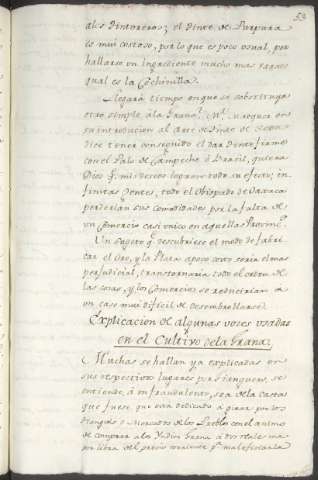 53
alos Tintoreros; el Tinte de Purpura
es mui costoso, por lo que es poco usual, por
hallarse un Ingrediente mucho mas
qual es la Cochinilla.
Llegará tiempo en que se substituya
otro simple á la Grana.
su introducion al Arte de Tintes de Seda
dice tener conseguido el dar Tinte firme
con el Palo de Campeche ó Brazil, quiera
Dios q.e mis deseos logren todo su efecto; in-
finitas Gentes, todo el Obispado de Oaxaca
perderian sus comodidades por la falta de
un Comercio casi unico en aquellas Provinc.s
Un Sugeto q.e descubriese el modo de fabri-
car el Oro, y la Plata apoco costo seria el mas
perjudicial, transtornaria todo el orden de
las cosas, y los Comercios se reducirian a
un caos mui dificil de desembrollarse.
Explicacion de algunas voces usadas
en el Cultivo dela Grana.
Muchas se hallan ya explicadas en
sus respectivos lugares por
entiende, á un fraudulento, sea dela Casta
que fuese que está dedicado á girar por los
Tiangues ó Mercados de los Pueblos con el animo
de comprar alos Yndios Grana á dos reales ma-
por libra del precio corriente p.a maleficiarla